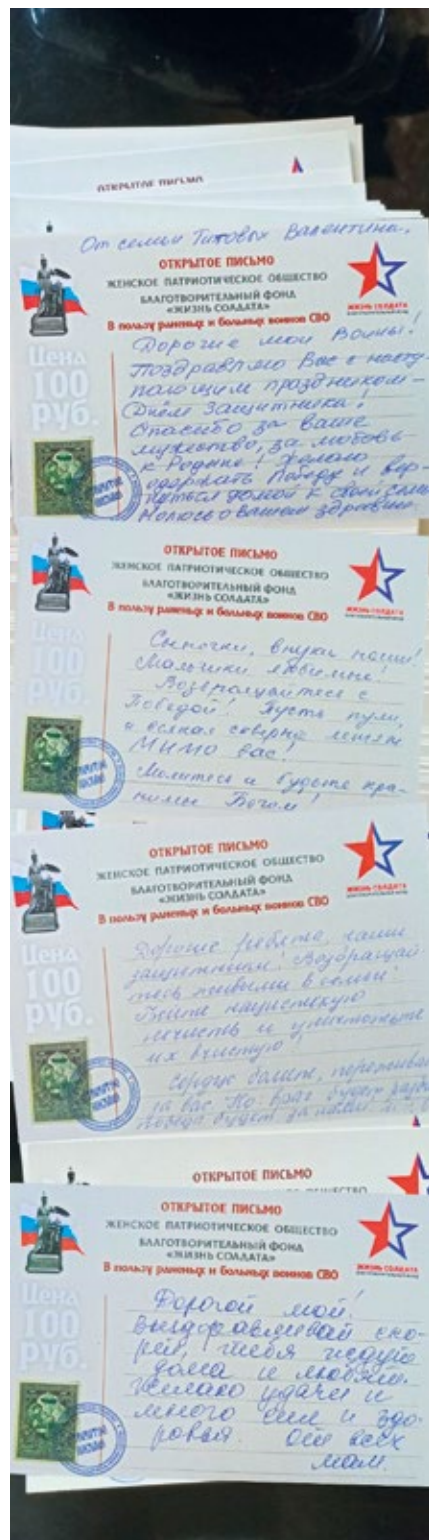 ОТКРЫТОЕ ПИСЬМО
От семьи Титовых Валентина,
ОТКРЫТОЕ ПИСЬМО
ЖЕНСКОЕ ПАТРИОТИЧЕСКОЕ ОБЩЕСТВО
БЛАГОТВОРИТЕЛЬНЫЙ ФОНД
«ЖИЗНЬ СОЛДАТА»
В пользу раненых и больных воинов СВО
ЖИЗНЬ СОЛДАТА
Цена
100
руб.
Дорогие мои Воины!
Поздравляю Вас с насту-
пающим праздником –
Днём Защитника!
Спасибо за ваше
мужество, за любовь
к Родине! Желаю
одержать Победу и вер-
нуться домой к своей семье
Молюсь о вашем здравии.
ОТКРЫТОЕ ПИСЬМО
ЖЕНСКОЕ ПАТРИОТИЧЕСКОЕ ОБЩЕСТВО
БЛАГОТВОРИТЕЛЬНЫЙ ФОНД
«ЖИЗНЬ СОЛДАТА»
В пользу раненых и больных воинов СВО
ЖИЗНЬ СОЛДАТА
Цена
100
руб.
Сыночки, внуки наши!
Мальчики любимые!
Возвращайтесь с
Победой! Пусть пули,
и всякая скверна летят
МИМО вас!
Молитесь и будьте хра-
нимы Богом!
ОТКРЫТОЕ ПИСЬМО
ЖЕНСКОЕ ПАТРИОТИЧЕСКОЕ ОБЩЕСТВО
БЛАГОТВОРИТЕЛЬНЫЙ ФОНД
«ЖИЗНЬ СОЛДАТА»
В пользу раненых и больных воинов СВО
ЖИЗНЬ СОЛДАТА
Цена
100
руб.
Дорогие ребята, наши
защитники! Возвращай
тесь живыми в семьи!
Бейте нацистскую
нечисть и уничтожьте
их вчистую!
Сердце болит, переживаем
за вас. Но враг будет разбит
победа будет за нами
ОТКРЫТОЕ ПИСЬМО
ОТКРЫТОЕ ПИСЬМО
ЖЕНСКОЕ ПАТРИОТИЧЕСКОЕ ОБЩЕСТВО
БЛАГОТВОРИТЕЛЬНЫЙ ФОНД
«ЖИЗНЬ СОЛДАТА»
В пользу раненых и больных воинов СВО
ЖИЗНЬ СОЛДАТА
Цена
100
руб.
Дорогой мой!
Выздоравливай ско-
рей, тебя ждут
дома и любят.
Желаю удачи и
много сил и здо-
ровья. От всех
мам.